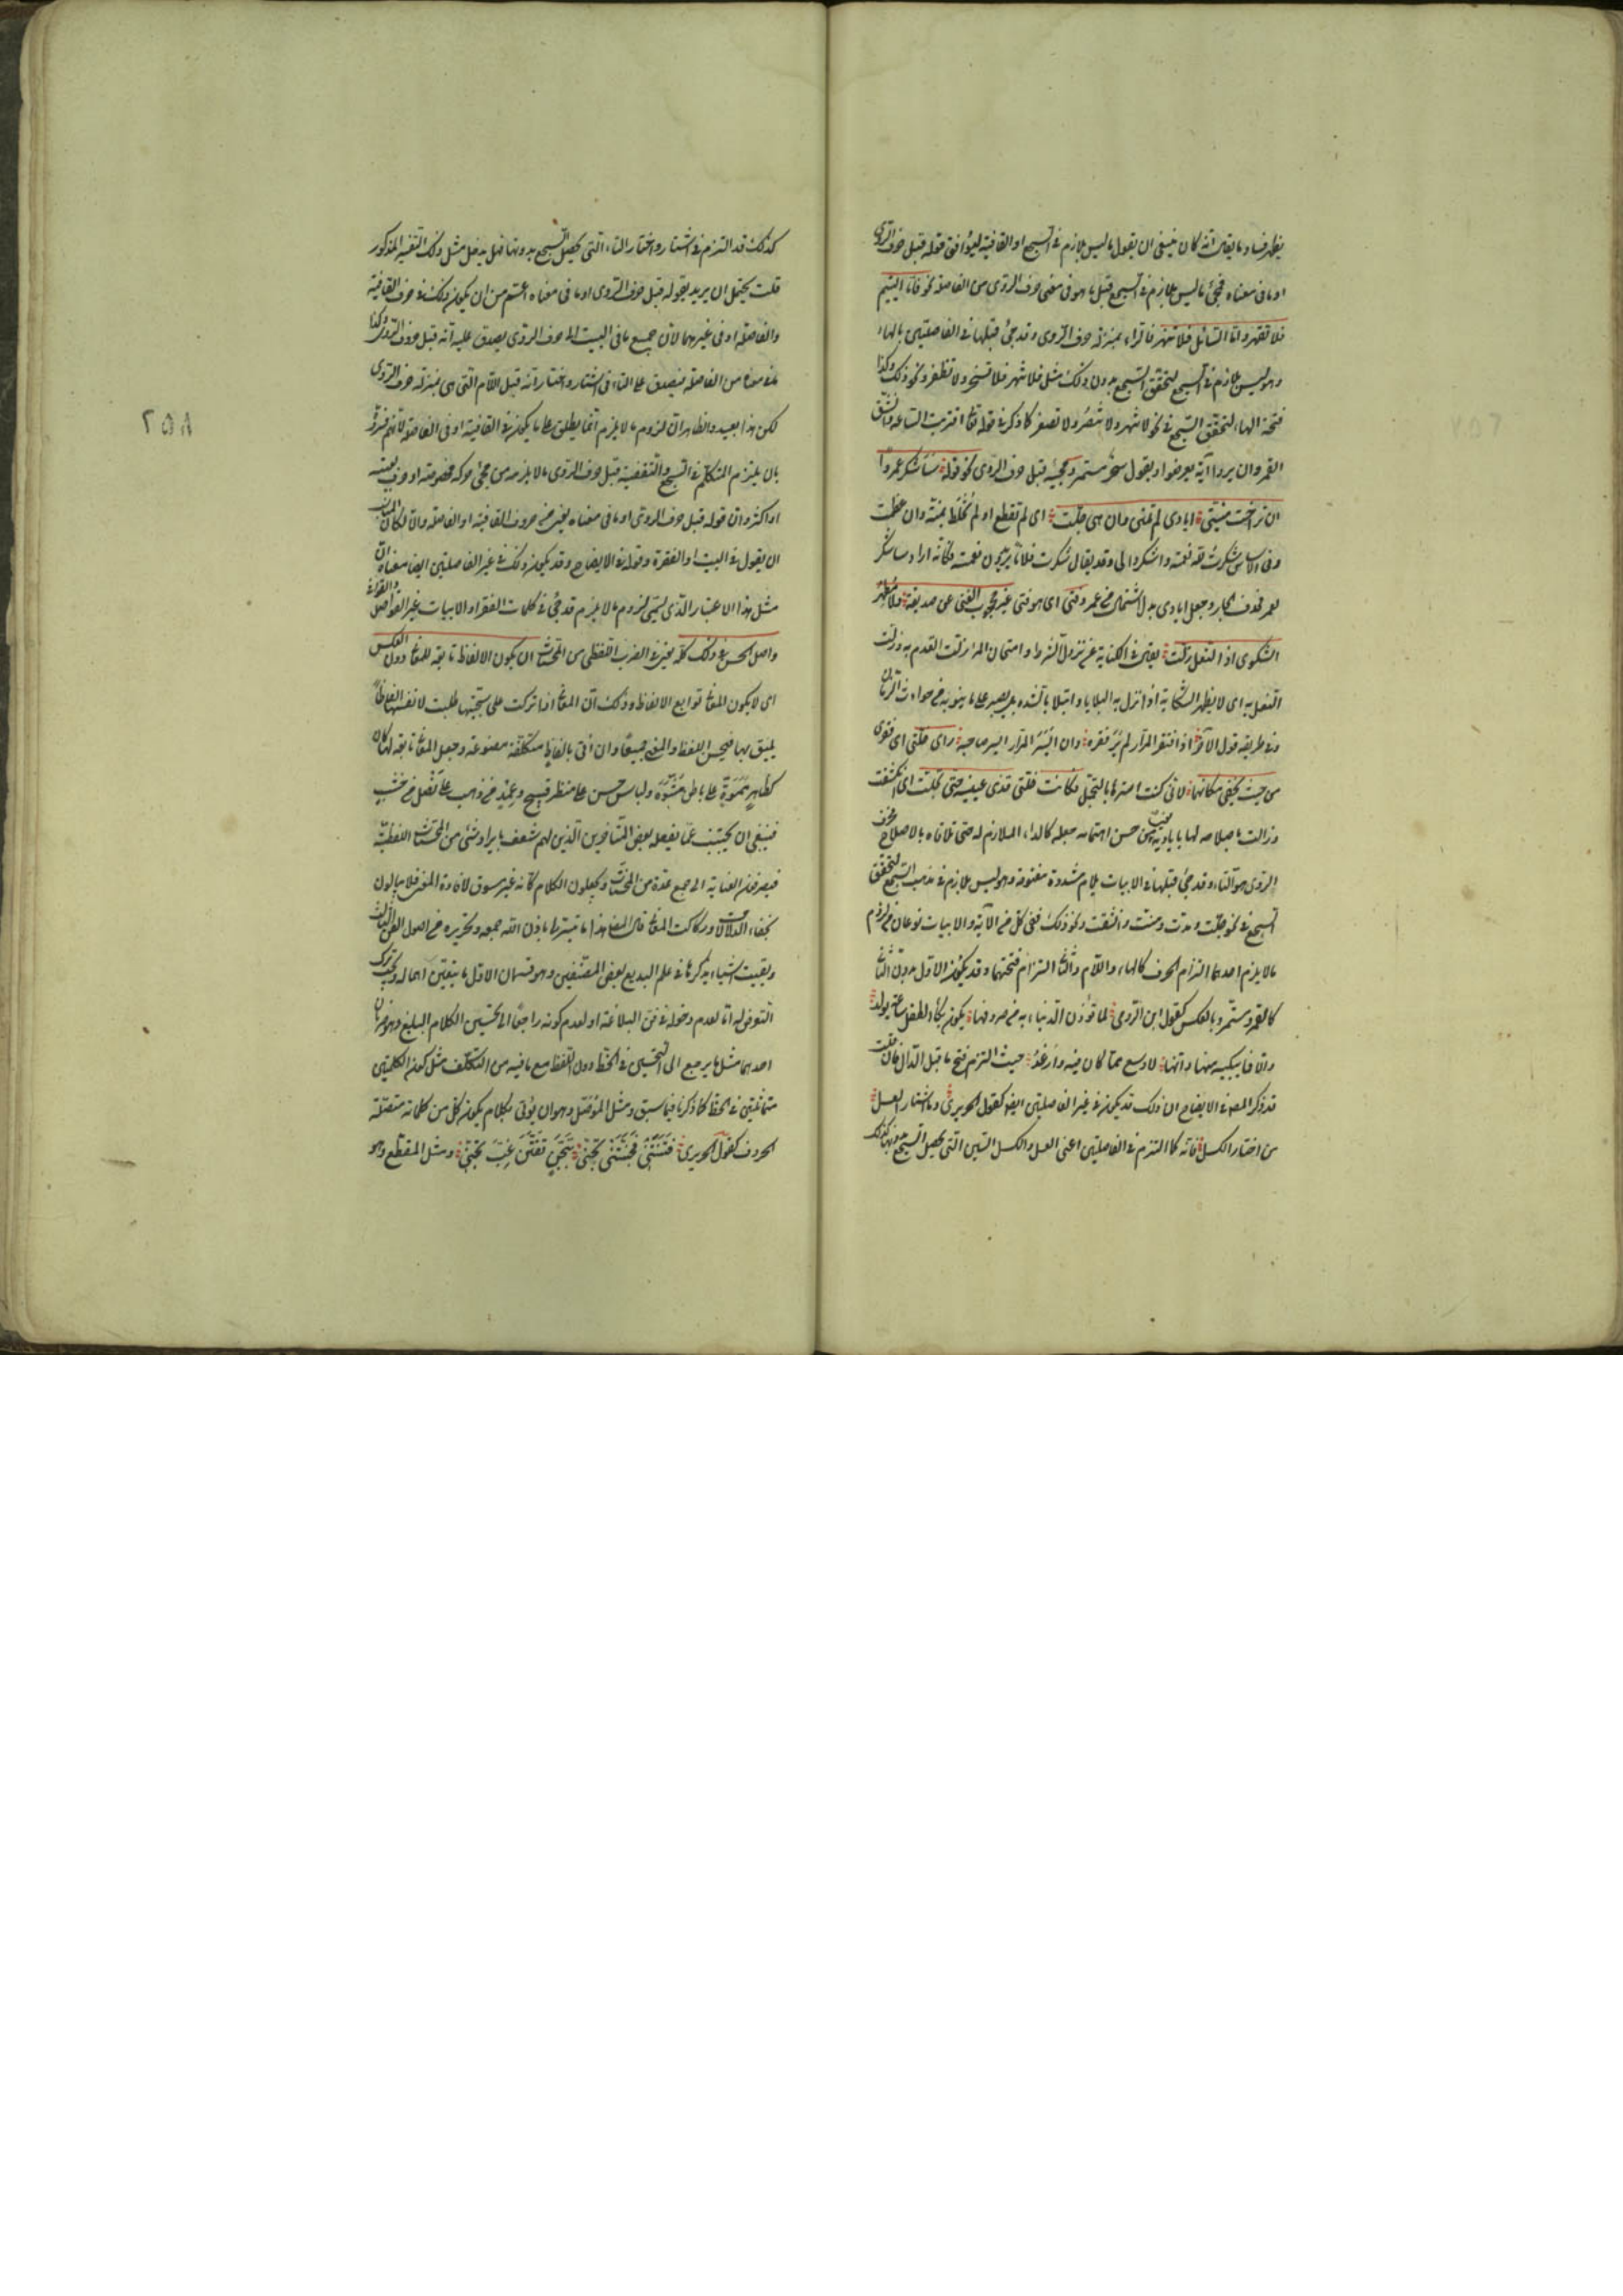 يظهر فساد ما يقال انه كان ينبغى ان يقول ما ليس بلازم فى السجع او القافية ليوافق قوله قبل حرف الروى
او ما فى معناه فمجئ ما ليس بلازم فى السجع قبل ما هو فى معنى حرف الروى من الفاصلة نحو فاما اليتيم
فلا تقهر واما السائل فلا تنهر فالراء بمنزلة حرف الروى وقد جئ قبلها فى الفاصلتين بالهاء
وهو ليس بلازم فى السجع لتحقق السجع بدون ذلك مثل فلا تنهر فلا تسخر ولا تظفر ونحو ذلك وكذا
فتحة الهاء لتحقق السجع فى نحو لا تنهر ولا تبصر ولا تصغر كما ذكر فى قوله تعالى اقتربت الساعة وانشق
القمر وان يروا اية يعرضوا ويقولوا سحر مستمر ومجيئه قبل حرف الروى نحو قوله سأشكر عمروا
ان تراخت منيتى ايادى لم تمنن وان هى جلت اى لم تقطع او لم تخلط بمنة وان عظمت
وفى الاساس شكرت لله نعمته واشكروا لى وقد يقال شكرت فلانا يريدون نعمته فكانه اراد ساشكر
لعمرو فحذف الجار وجعل ايادى بدل اشتمال من عمرو فتى اى هو فتى غير محجوب الغنى عن صديقه ولا مظهر
الشكوى اذ النعل زلت يعنى فى الكناية عن نزول الشر وامتحان المرء زلت القدم به وزلت
النعل به اى لا يظهر الشكاية اذا نزل به البلايا وابتلى بالشدة بل يصبر على ما ينوبه من حوادث الزمان
وفى طريقه قول الاخر اذا افتقر المرار لم ير فقره وان ايسر المرار ايسر صاحبه راى خلتى اى فقرى
من حيث يخفى مكانها لانى كنت استرها بالتجمل فكانت قذى عينيه حتى تجلت اى انكشفت
وزالت باصلاحه لها باياديه يعنى من حسن اهتمامه جعله كالداء الملازم له حتى تلافاه بالاصلاح فحرف
الروى هو التاء وقد جئ قبلها فى الابيات بلام مشددة مفتوحة وهو ليس بلازم فى مذهب السجع لتحقق
السجع فى نحو جلت ومدت ومنت وانشقت ونحو ذلك ففى كل من الاية والابيات نوعان من لزوم
ما لا يلزم احدهما التزام الحرف كالهاء واللام والثانى التزام فتحتهما وقد يكون الاول بدون الثانى
كالقمر ومستمر وبالعكس كقول ابن الرومى لما تؤذن الدنيا به من صروفها يكون بكاء الطفل ساعة يولد
والا فما يبكيه منها وانها لاوسع مما كان فيه وارغد حيث التزم فتح ما قبل الدال فان قلت
قد ذكر المصنف فى الايضاح ان ذلك قد يكون فى غير الفاصلتين ايضا كقول الحريرى وما اشتار العسل
من اختار الكسل فانه كما التزم فى الفاصلتين اعنى العسل والكسل السين التى يحصل السجع بدونها كذلك
٢٥٨
كذلك قد التزم فى اشتار واختار التاء التى يحصل السجع بدونها فهل يدخل مثل ذلك التفسير المذكور
قلت يحتمل ان يريد بقوله قبل حرف الروى او ما فى معناه اعم من ان يكون ذلك فى حرف القافية
والفاصلة او فى غيرهما لان جميع ما فى البيت الى حرف الروى يصدق عليه انه قبل حرف الروى وكذا
ما فى معناه من الفاصلة فيصدق على التاء فى اشتار واختار انه قبل اللام التى هى بمنزلة حرف الروى
لكن هذا بعيد والظاهر ان لزوم ما لا يلزم انما يطلق على ما يكون فى القافية او فى الفاصلة لانهم فسروه
بان يلتزم المتكلم فى السجع والتقفية قبل حرف الروى ما لا يلزمه من مجئ حركة مخصوصة او حرف بعينه
او اكثر وان قوله قبل حرف الروى او ما فى معناه يعنى من حروف القافية او الفاصلة والا لكان المناسب
ان يقول فى البيت او الفقرة وقوله فى الايضاح وقد يكون ذلك فى غير الفاصلتين ايضا معناه ان
مثل هذا الاعتبار الذى يسمى لزوم ما لا يلزم قد يجئ فى كلمات الفقر او الابيات غير الفواصل والقوافى
واصل الحسن فى ذلك كله يعنى فى الضرب اللفظى من المحسنات ان يكون الالفاظ تابعة للمعانى دون العكس
اى لا يكون المعانى توابع الالفاظ وذلك ان المعانى اذا تركت على سجيتها طلبت لانفسها الفاظا
يليق بها فيحسن اللفظ والمعنى جميعا وان اتى بالفاظ متكلفة مصنوعة وجعل المعانى تابعة لها كان
كظاهر مموه على باطن مشوه ولباس حسن على منظر قبيح وغمد من ذهب على نصل من خشب
فينبغى ان يجتنب عما يفعله بعض المتاخرين الذين لهم شعف بايراد شئ من المحسنات اللفظية
فيصرفون العناية الى جمع عدة من المحسنات ويجعلون الكلام كانه غير مسوق لافادة المعنى فلا يبالون
بخفاء الدلالات وركاكة المعانى قال المصنف هذا ما تيسر لى باذن الله جمعه وتحريره من اصول الفن الثالث
وبقيت اشياء يذكرها فى علم البديع بعض المصنفين وهو قسمان الاول ما يتعين اهماله ويجب ترك
التعرض له اما لعدم دخوله فى فن البلاغة او لعدم كونه راجعا الى تحسين الكلام البليغ وهو ضربان
احدهما مثل ما يرجع الى التحسين فى الخط دون اللفظ مع ما فيه من التكلف مثل كون الكلمتين
متماثلتين فى الخط كما ذكرنا فيما سبق ومثل الموصل وهو ان يؤتى بكلام يكون كل من كلماته متصلة
الحروف كقول الحريرى فتنتنى فجننتنى تجنى بتجن يفتن غب تجنى ومثل المقطع وهو